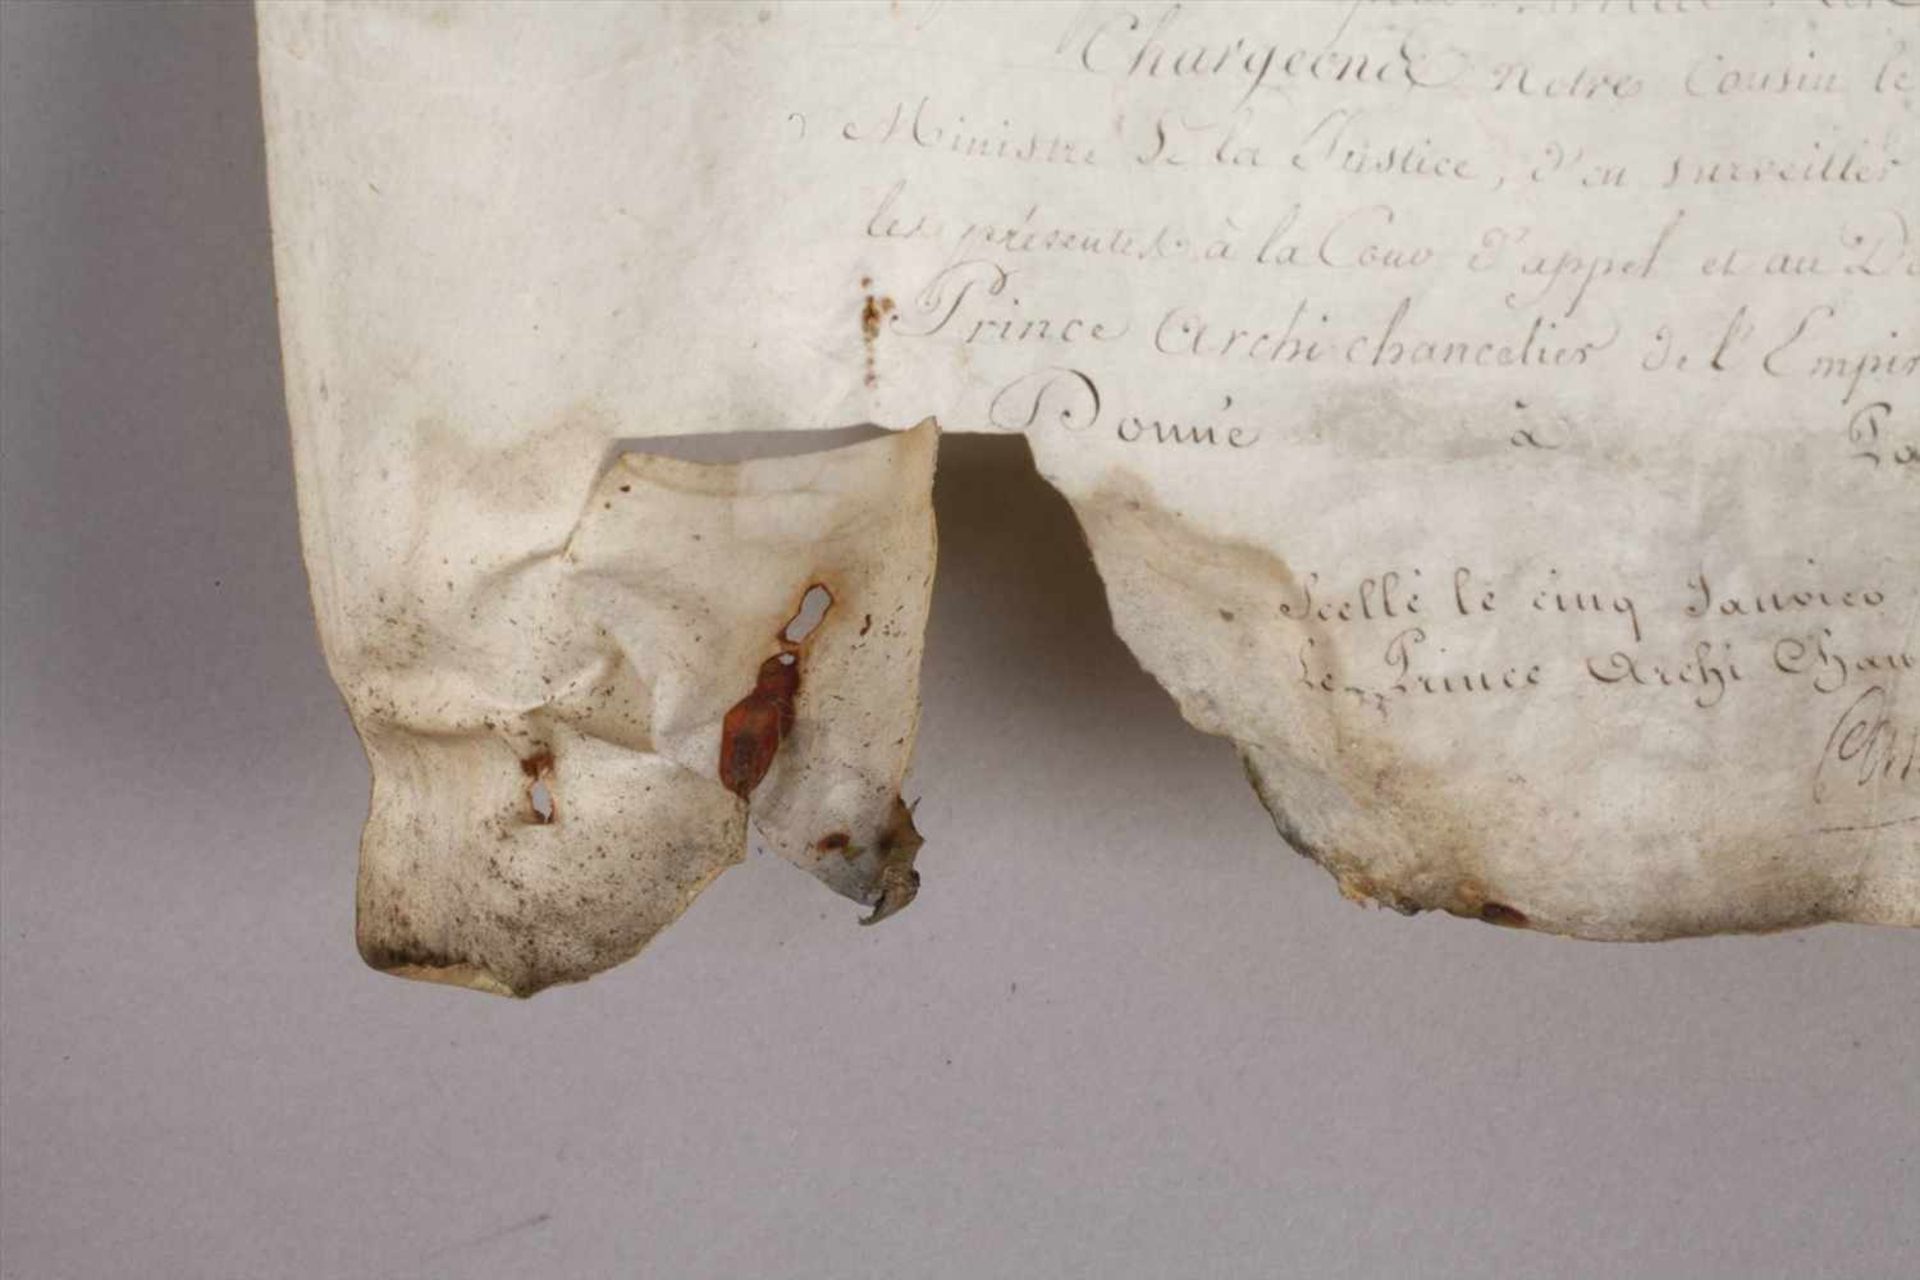 Chargeons Notre Cousin le
Ministre de la Justice, d'en surveiller
les présentes à la Cour d'appel et au
Prince Archichancelier de l'Empir
Donné à Pa
Scellé le cinq Janvier
Le Prince Archi Chan